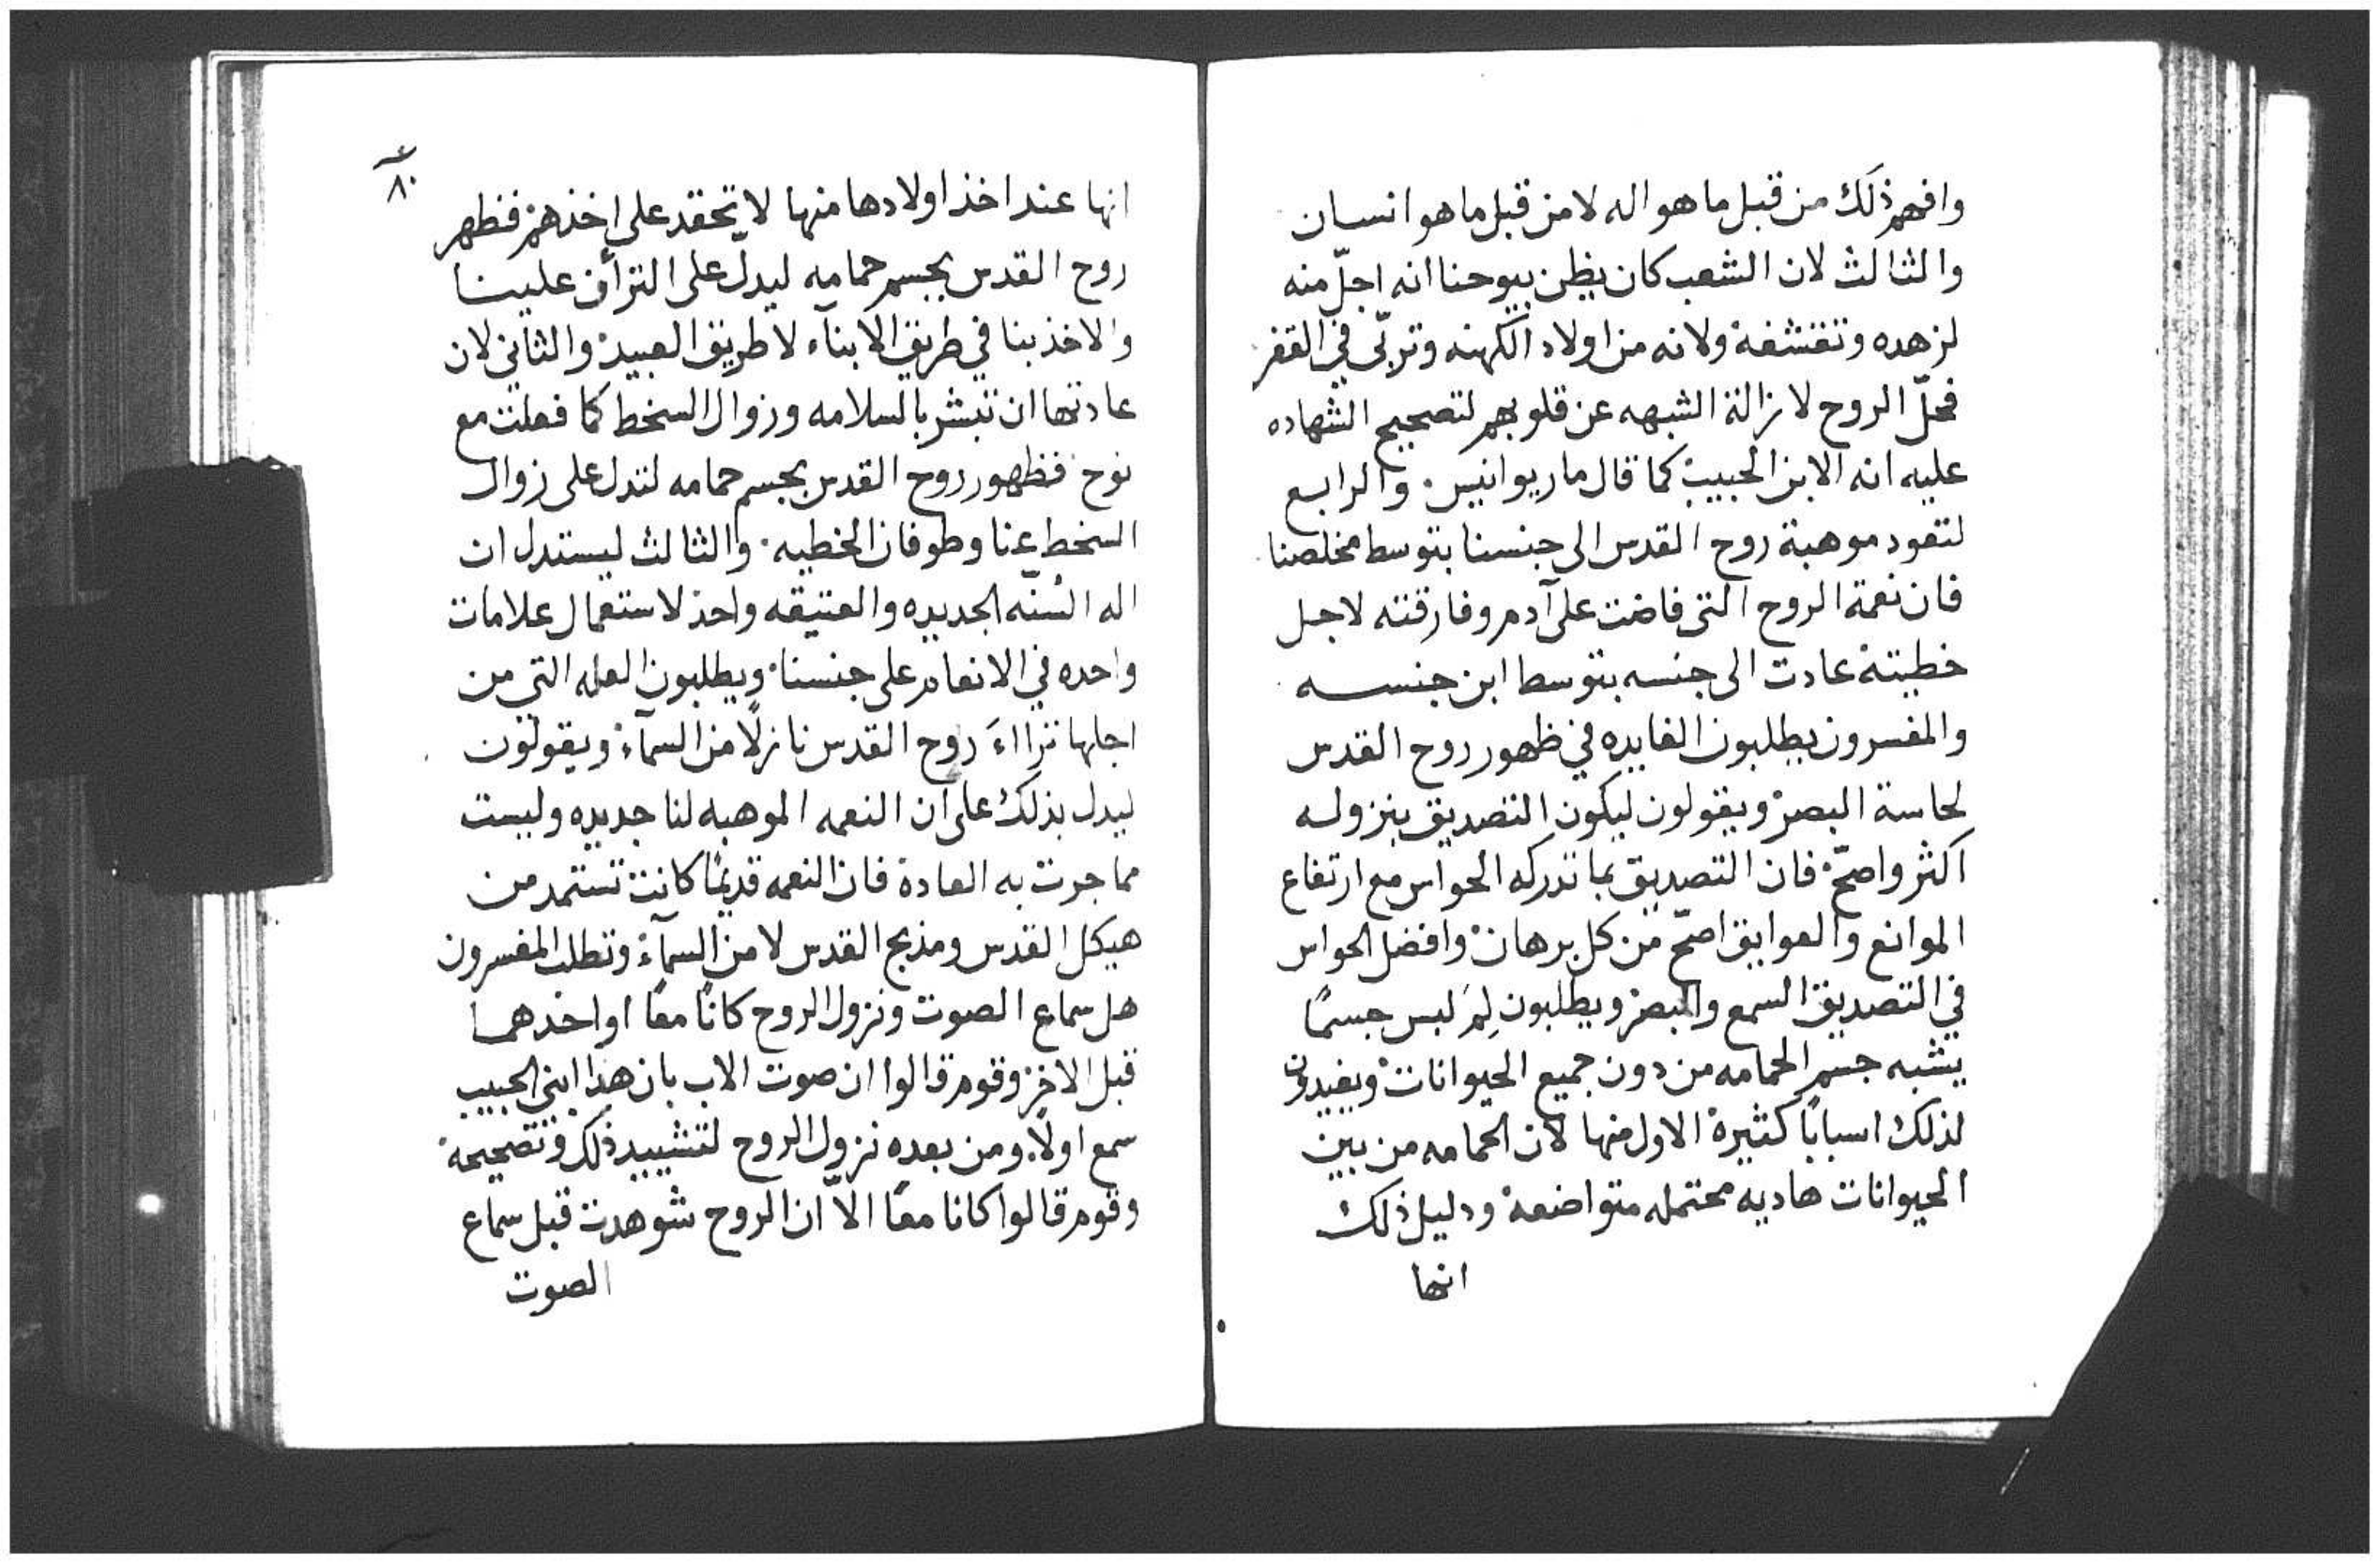 وافهم ذلك من قبل ما هو اله لا من قبل ما هو انسان
والثالث لان الشعب كان يظن بيوحنا انه اجلّ منه
لزهده وتقشفه ولانه من اولاد الكهنه وتربّى في القفر
فحلّ الروح لازالة الشبهه عن قلوبهم لتصحيح الشهاده
عليه انه الابن الحبيب كما قال ماريوانيس. والرابع
لتعود موهبة روح القدس الى جنسنا بتوسط مخلصنا
فان نعمة الروح التي فاضت على آدم وفارقته لاجل
خطيته عادت الى جنسه بتوسط ابن جنسه
والمفسرون يطلبون الفايده في ظهور روح القدس
لحاسة البصر ويقولون ليكون التصديق بنزوله
اكثر واصحّ فان التصديق بما تدركه الحواس مع ارتفاع
الموانع والعوايق اصحّ من كل برهان وافضل الحواس
في التصديق السمع والبصر ويطلبون لِمَ لبس جسمًا
يشبه جسم الحمامه من دون جميع الحيوانات ويفيدون
لذلك اسبابًا كثيرة الاول منها لان الحمامه من بين
الحيوانات هاديه محتمله متواضعه ودليل ذلك
انها
٨٠
انها عند اخذ اولادها منها لا تحقد على اخذهم فظهر
روح القدس بجسم حمامه ليدلّ على الترأف علينا
والاخذ بنا في طريق الابنآء لا طريق العبيد والثاني لان
عادتها ان تبشر بالسلامه وزوال السخط كما فعلت مع
نوح فظهور روح القدس بجسم حمامه لتدل على زوال
السخط عنا وطوفان الخطيه. والثالث ليستدل ان
اله السُنّه الجديده والعتيقه واحد لاستعمال علامات
واحده في الانعام على جنسنا. ويطلبون العله التي من
اجلها تراااءَ روح القدس نازلًا من السمآء ويقولون
ليدل بذلك على ان النعمه الموهبه لنا جديده وليست
مما جرت به العادة فان النعمه قديمًا كانت تستمد من
هيكل القدس ومذبح القدس لا من السمآء وتطلب المفسرون
هل سماع الصوت ونزول الروح كانا معًا او احدهما
قبل الاخر وقوم قالوا ان صوت الاب بان هذا ابني الحبيب
سمع اولًا ومن بعده نزول الروح لتشييد ذلك وتصحيحه
وقوم قالوا كانا معًا الاّ ان الروح شوهدت قبل سماع
الصوت